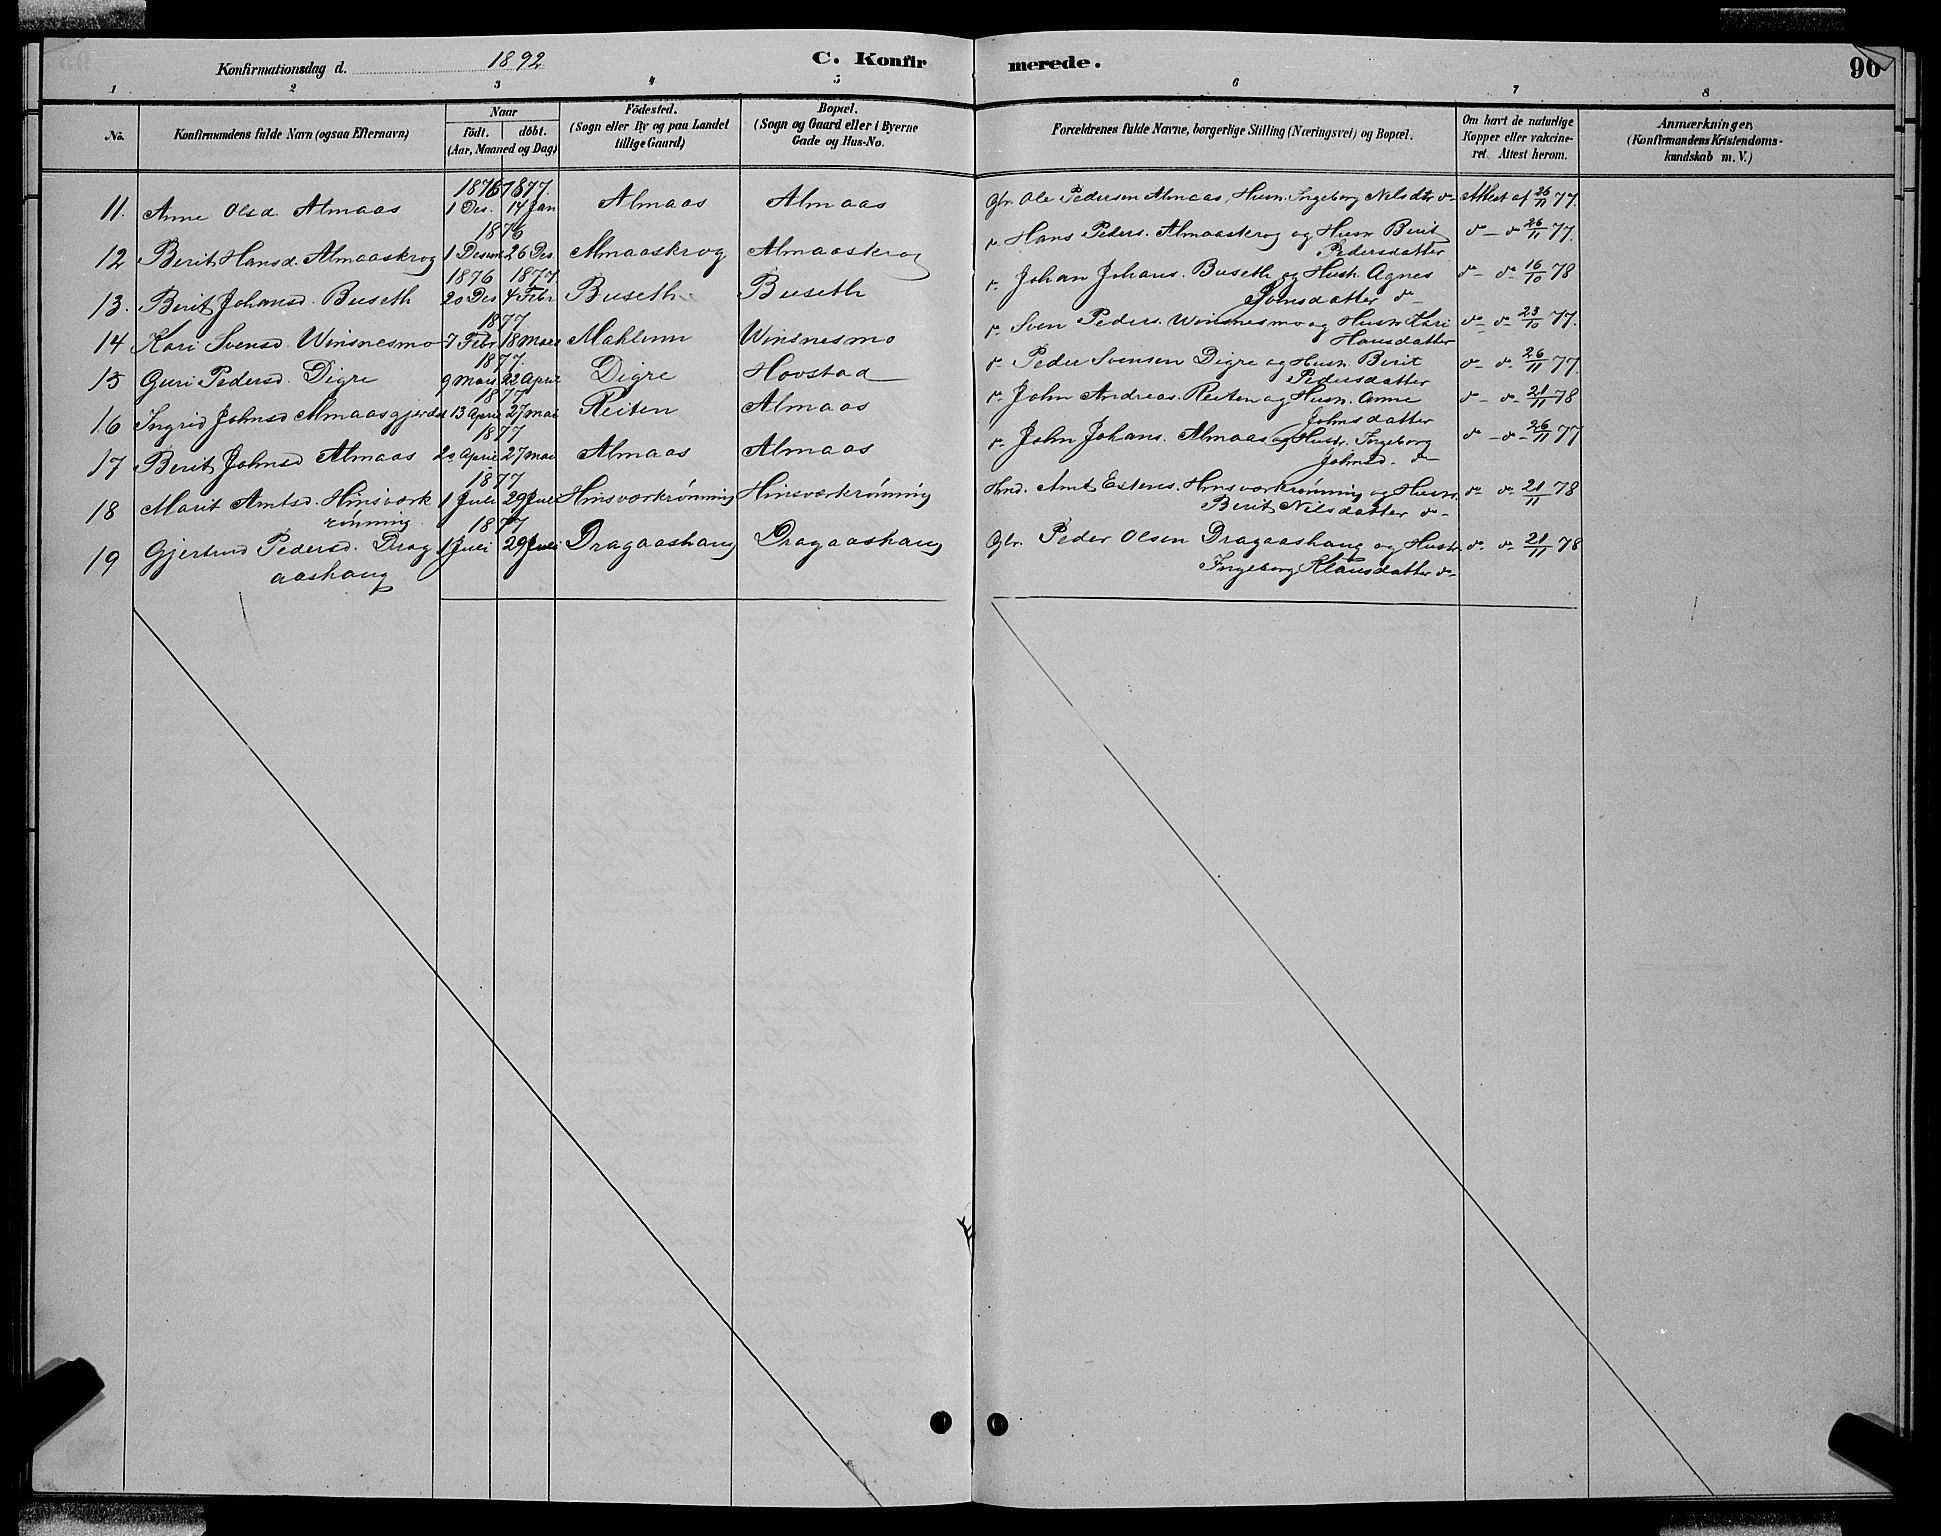 Konfirmationsdag d. 1892 C. Konfirmerede. 96
1 2 3 4 5 6 7 8
No. Konfirmandens fulde Navn (ogsaa Efternavn) Naar födt. döbt. (Aar, Maaned og Dag) Födested. (Sogn eller By og paa Landet tillige Gaard) Bopæl. (Sogn og Gaard eller i Byerne Gade og Hus-No. Forældrenes fulde Navne, borgerlige Stilling (Næringsvei) og Bopæl. Om havt de naturlige Kopper eller vakcineret. Attest herom. Anmærkninger, (Konfirmandens Kristendomskundskab m. V.)
1876 1877.
11. Anne Olsd. Almaas 1 Des. 14 Jan Almaas Almaas Gbr. Ole Pedersen Almaas, Husn. Ingeborg Nilsdtr do Attest af 26/11 77.
1876
12 Berit Hansd. Almaaskrog 1 Desem 26 Des Almaaskrog Almaaskrog do Hans Peders. Almaaskrog og Hustr Berit do - do 26/11 77.
Pedersdatter
1876 1877
13. Berit Johansd. Buseth 20 Des 4 Febr Buseth Buseth do Johan Johans. Buseth og Hustr. Agnes do - do 16/10 78
Svensdatter do
1877
14 Kari Svensd. Winsnesmo 7 Febr 18 Mars Mahlum Winsnesmo do Sven Peders. Winsnesmo og Hustr Kari do - do 23/10 77.
Hansdatter
1877.
15 Guri Pedersd. Digre 9 Mars 22 April Digre Hovstad do Peder Svensen Digre og Hustr. Berit do - do 26/11 77
Pedersdatter
1877
16 Ingrid Johnsd Almaasgjerdet 13 April 27 Mai Reiten Almaas do John Andreas. Reiten og Hustr. Anne do - do 21/11 78
Johnsdatter
1877
17 Berit Johnsd Almaas 20 April 27 Mai Almaas Almaas do John Johans. Almaas og Hustr. Ingeborg do - do 26/11 77
Johnsd. do
1877
18 Marit Arntsd. Hinsværk 1 Juli 29 Juli Hinsværkrønning Hinsværkrønning Hmd. Arnt Estens. Hinsværkrønning og Hustr. do do 21/11 78
rönning. Berit Nilsdatter do
1877
19 Gjertrud Pedersd. Drag 1 Juli 29 Juli Dragaashaug Dragaashaug Gbr. Peder Olsen Dragaashaug og Hustr. do do 21/11 78
aashaug Ingeborg Klausdatter do